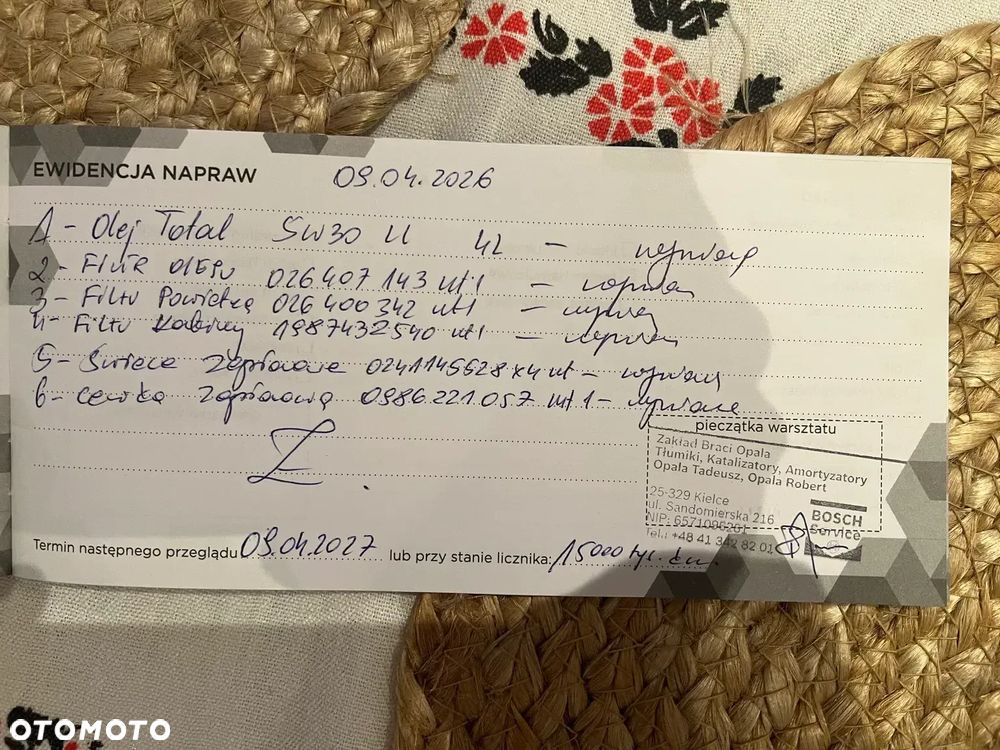 EWIDENCJA NAPRAW 09.04.2026
1 - Olej Total 5W30 4L - wymiana
2 - Filtr oleju 026407143 szt1 - wymiana
3 - Filtr Powietrza 026400342 szt1 - wymiana
4 - Filtr Kabiny 1987432540 szt1 - wymiana
5 - Świece Zapłonowe 0241145628 x4 szt - wymiana
6 - cewka Zapłonowa 0986.221.057 szt 1 - wymiana
Z
pieczątka warsztatu
Zakład Braci Opala
Tłumiki, Katalizatory, Amortyzatory
Opala Tadeusz, Opala Robert
25-329 Kielce
ul. Sandomierska 216
NIP: 6571086261
Tel.: +48 41 342 82 01
BOSCH
Service
Termin następnego przeglądu 09.04.2027 lub przy stanie licznika: 15000 tyś. km.
OTOMOTO